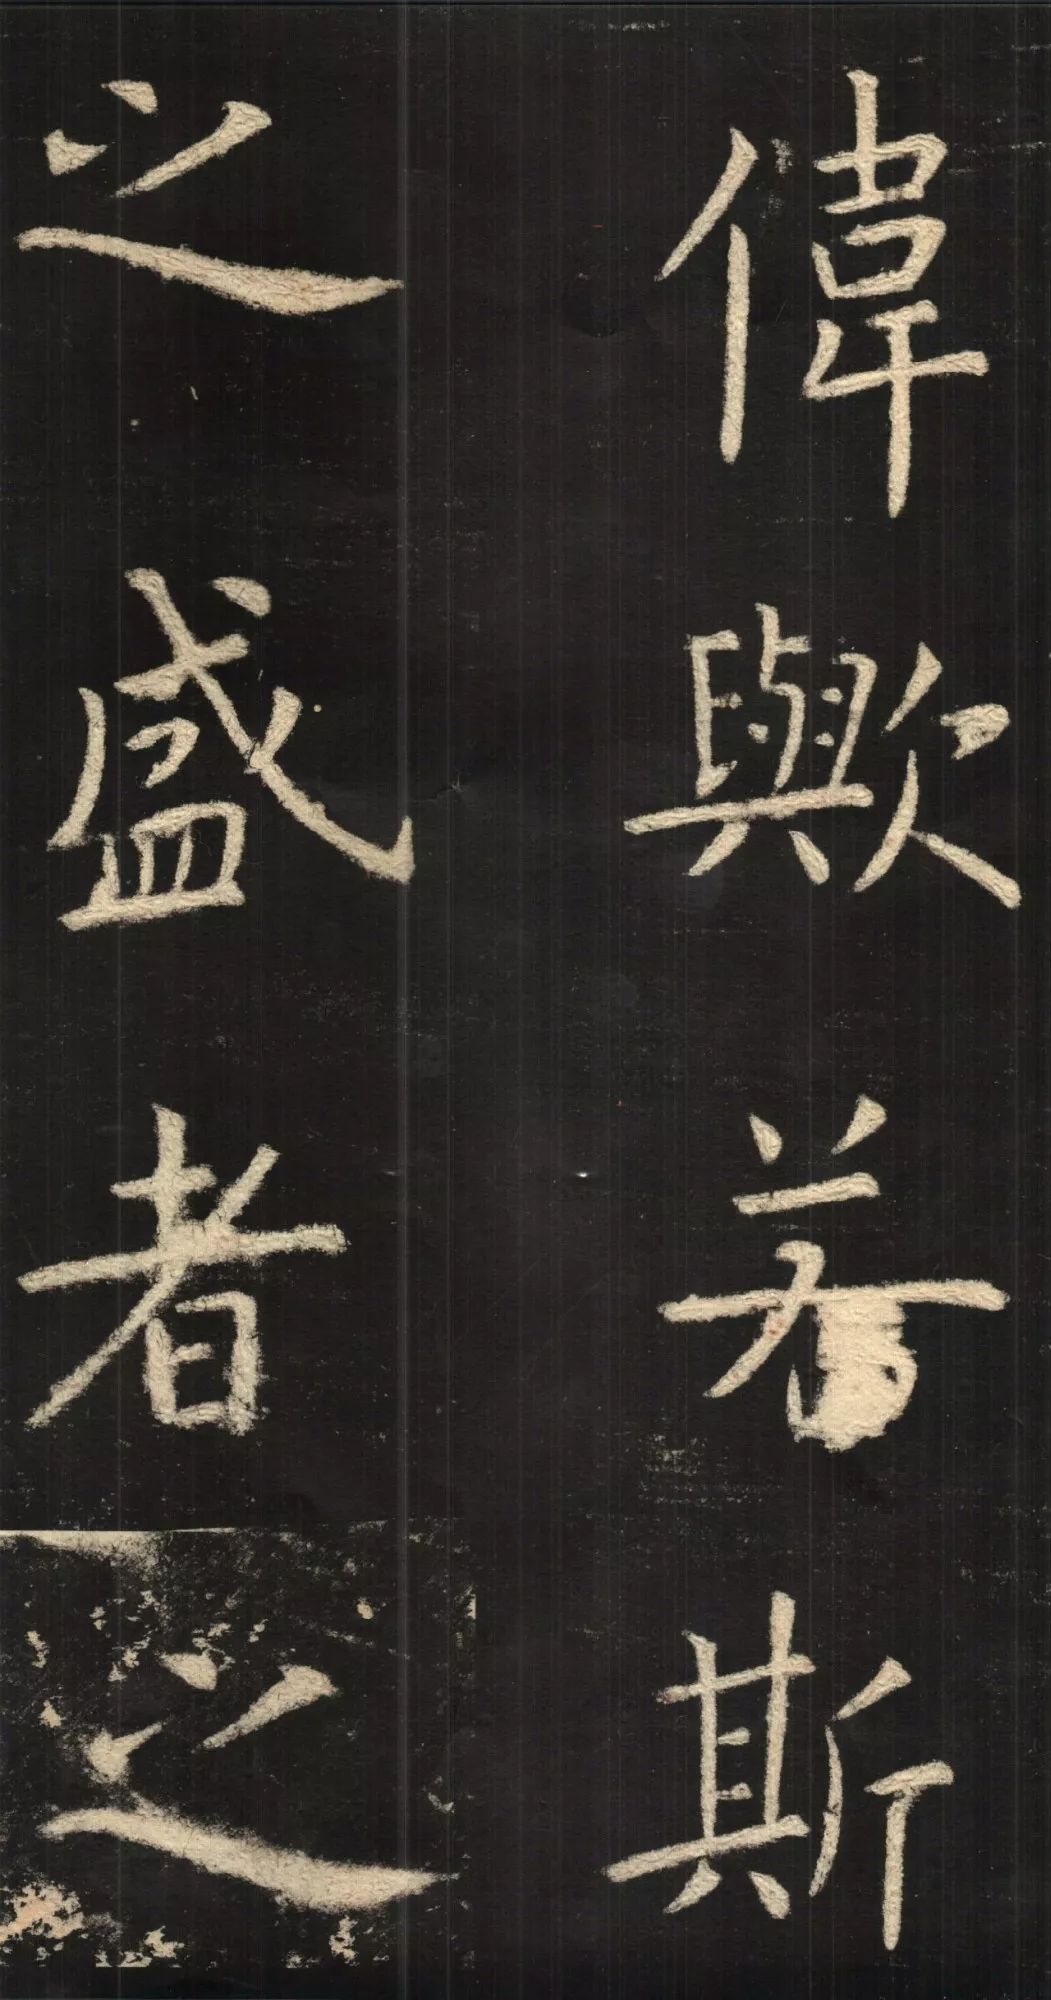 偉歟若斯
之盛者之